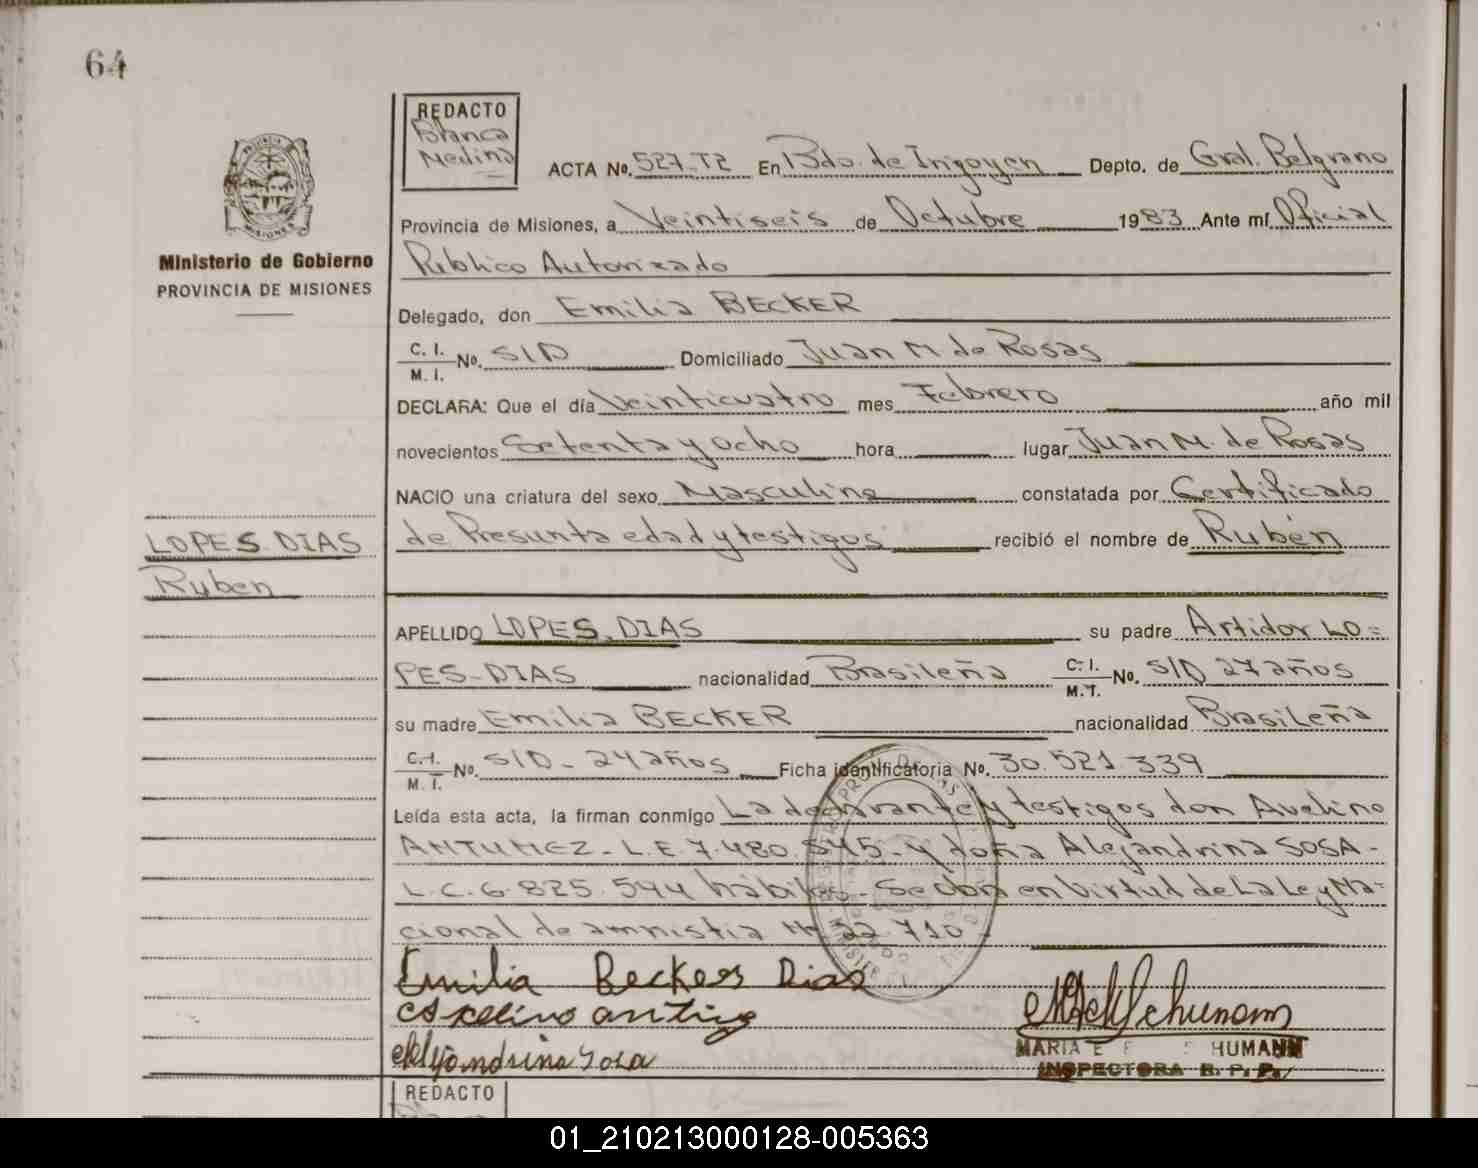 64
REDACTO
Blanca
Medina
ACTA No. 527-T2 En Bdo. de Irigoyen Depto. de Gral. Belgrano
Provincia de Misiones, a Veintiseis de Octubre 1983 Ante mí Oficial
Ministerio de Gobierno
PROVINCIA DE MISIONES
Público Autorizado
Delegado, don Emilia BECKER
C. I.
M. I. No. S/D Domiciliado Juan M de Rosas
DECLARA: Que el día Veinticuatro mes Febrero año mil
novecientos Setenta y ocho hora lugar Juan M. de Rosas
NACIO una criatura del sexo Masculino constatada por Certificado
de Presunta edad y testigos recibió el nombre de Rubén
LOPES DIAS
Ruben
APELLIDO LOPES. DIAS su padre Artidor LO=
PES-DIAS nacionalidad Brasileña C. I. M.T. No. S/D 27 años
su madre Emilia BECKER nacionalidad Brasileña
C. I. M. I. No. S/D - 24 años Ficha identificatoria No. 30.521.339
Leída esta acta, la firman conmigo La declarante y testigos don Avelino
ANTUNEZ - L.E 7.480.545 - y doña Alejandrina SOSA -
L.C. 6.825.544 hábiles - Se labra en Virtud de La Ley Na=
cional de amnistia Nº 22.710 -
Emilia Beckers Dias
Alejandrina Sosa
MARIA E HUMANN
INSPECTORA R. P. P.
REDACTO
01_210213000128-005363